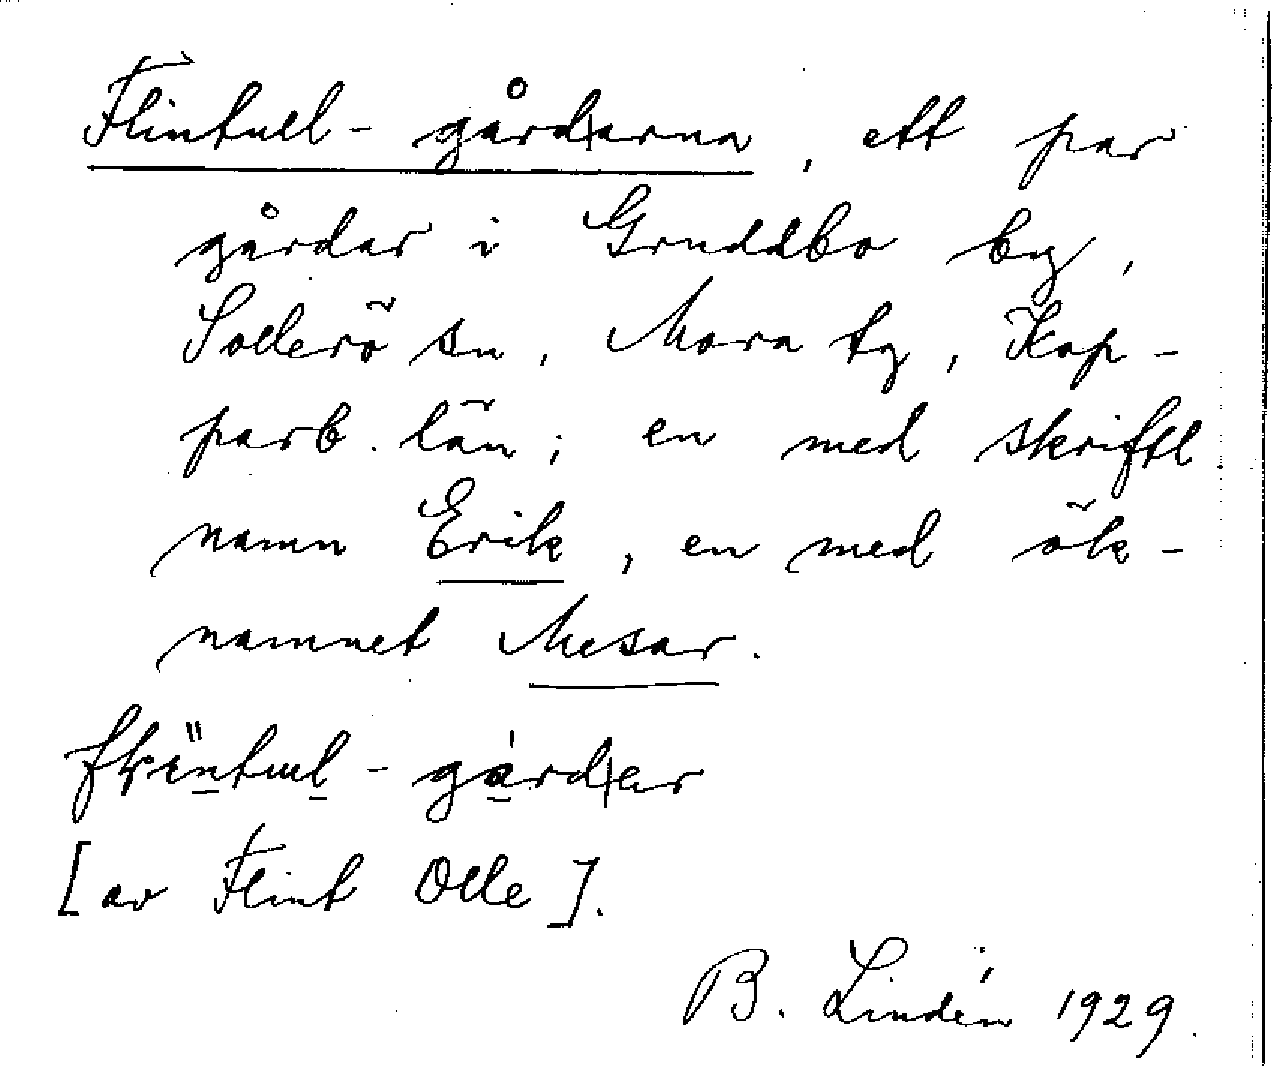 Flintull-gårdarna, ett par
gårdar i Gruddbo by,
Sollerö sn, Mora tg, Kop-
parb. län; en med skriftl.
namn Erik, en med ök-
namnet Mesar.
-gårdär
[av Flint Olle].
B. Lindén 1929.